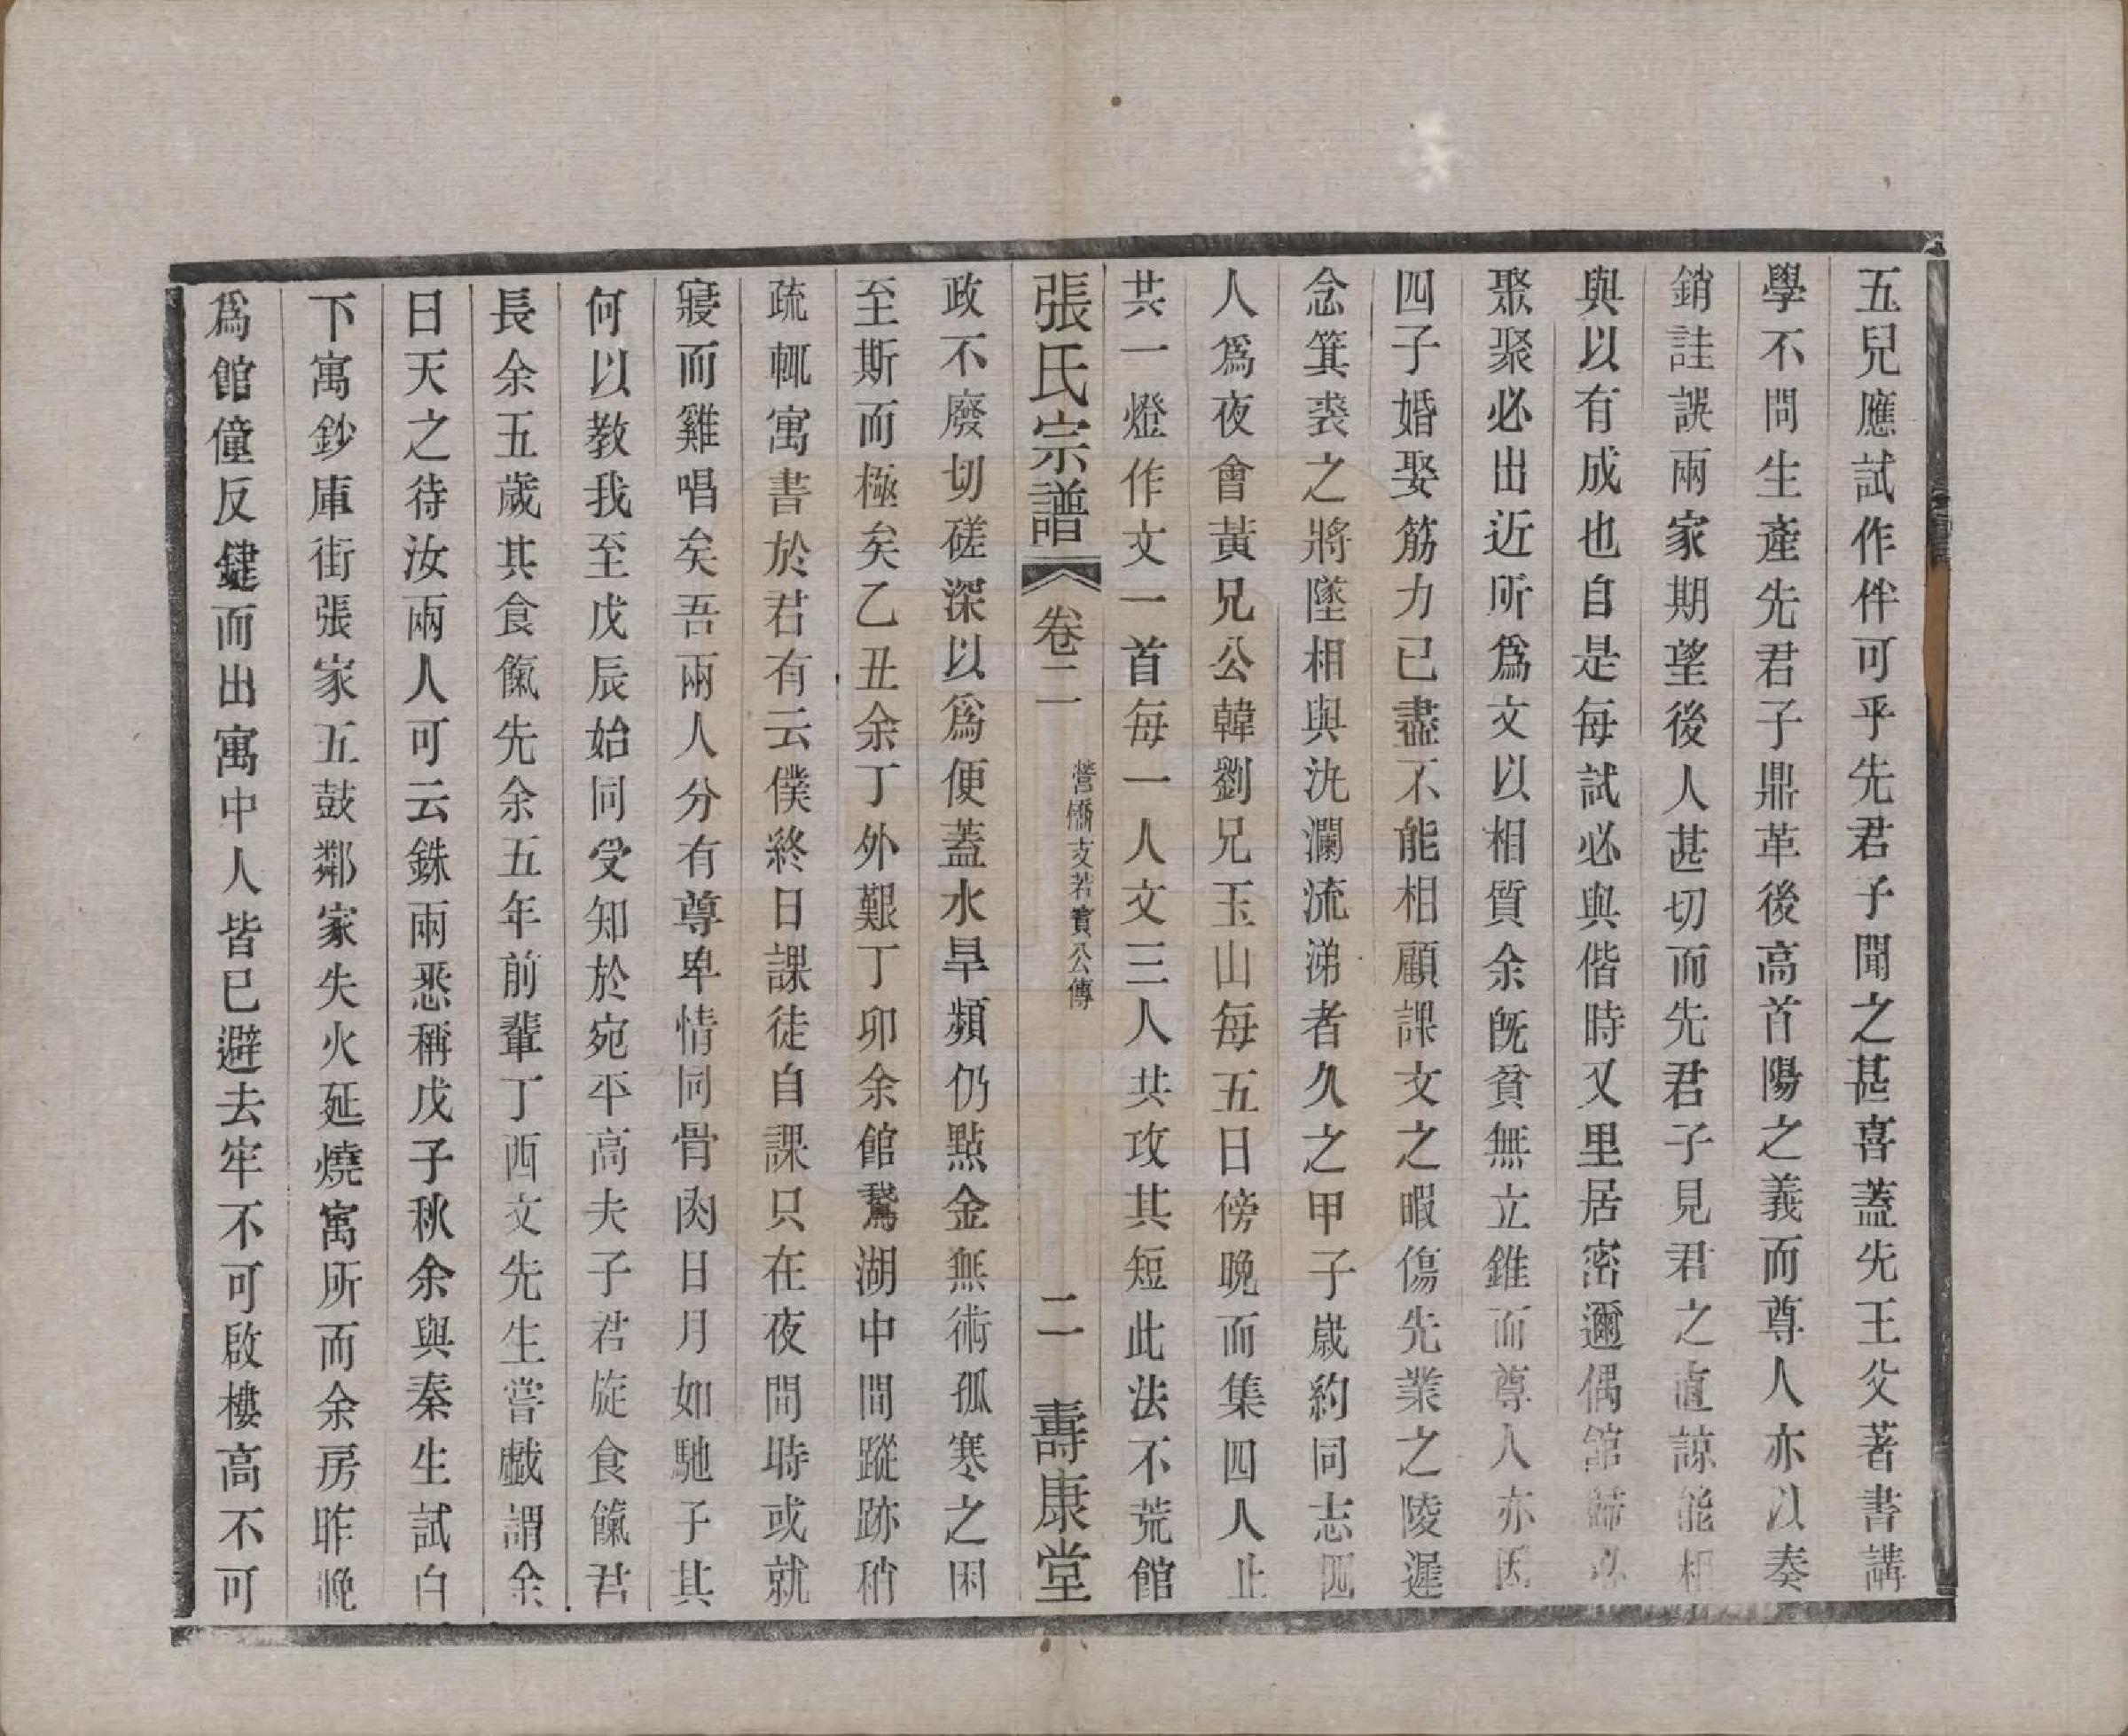 五兒應試作伴可乎先君子聞之甚喜蓋先王父著書講
學不問生產先君子鼎革後高首陽之義而尊人亦以奏
銷詿誤兩家期望後人甚切而先君子見君之直諒能相
與以有成也自是每試必與偕時又里居密邇偶館歸必
聚聚必出近所爲文以相質余旣貧無立錐而尊人亦因
四子婚娶筋力已盡不能相顧課文之暇傷先業之陵遲
念箕裘之將墜相與汍瀾流涕者久之甲子歲約同志四
人爲夜會黃兄公韓劉兄玉山每五日傍晚而集四人止
共一燈作文一首每一人文三人共攻其短此法不荒館
張氏宗譜 卷二 營僑支若賓公傳 二 壽康堂
政不廢切磋深以爲便蓋水旱頻仍點金無術孤寒之困
至斯而極矣乙丑余丁外艱丁卯余館鵞湖中間蹤跡稍
疏輒寓書於君有云僕終日課徒自課只在夜間時或就
寢而雞唱矣吾兩人分有尊卑情同骨肉日月如馳子其
何以教我至戊辰始同受知於宛平高夫子君旋食餼君
長余五歲其食餼先余五年前輩丁酉文先生嘗戲謂余
曰天之待汝兩人可云銖兩悉稱戊子秋余與秦生試白
下寓鈔庫街張家五鼓鄰家失火延燒寓所而余房昨晚
爲館僮反鍵而出寓中人皆已避去牢不可啟樓高不可